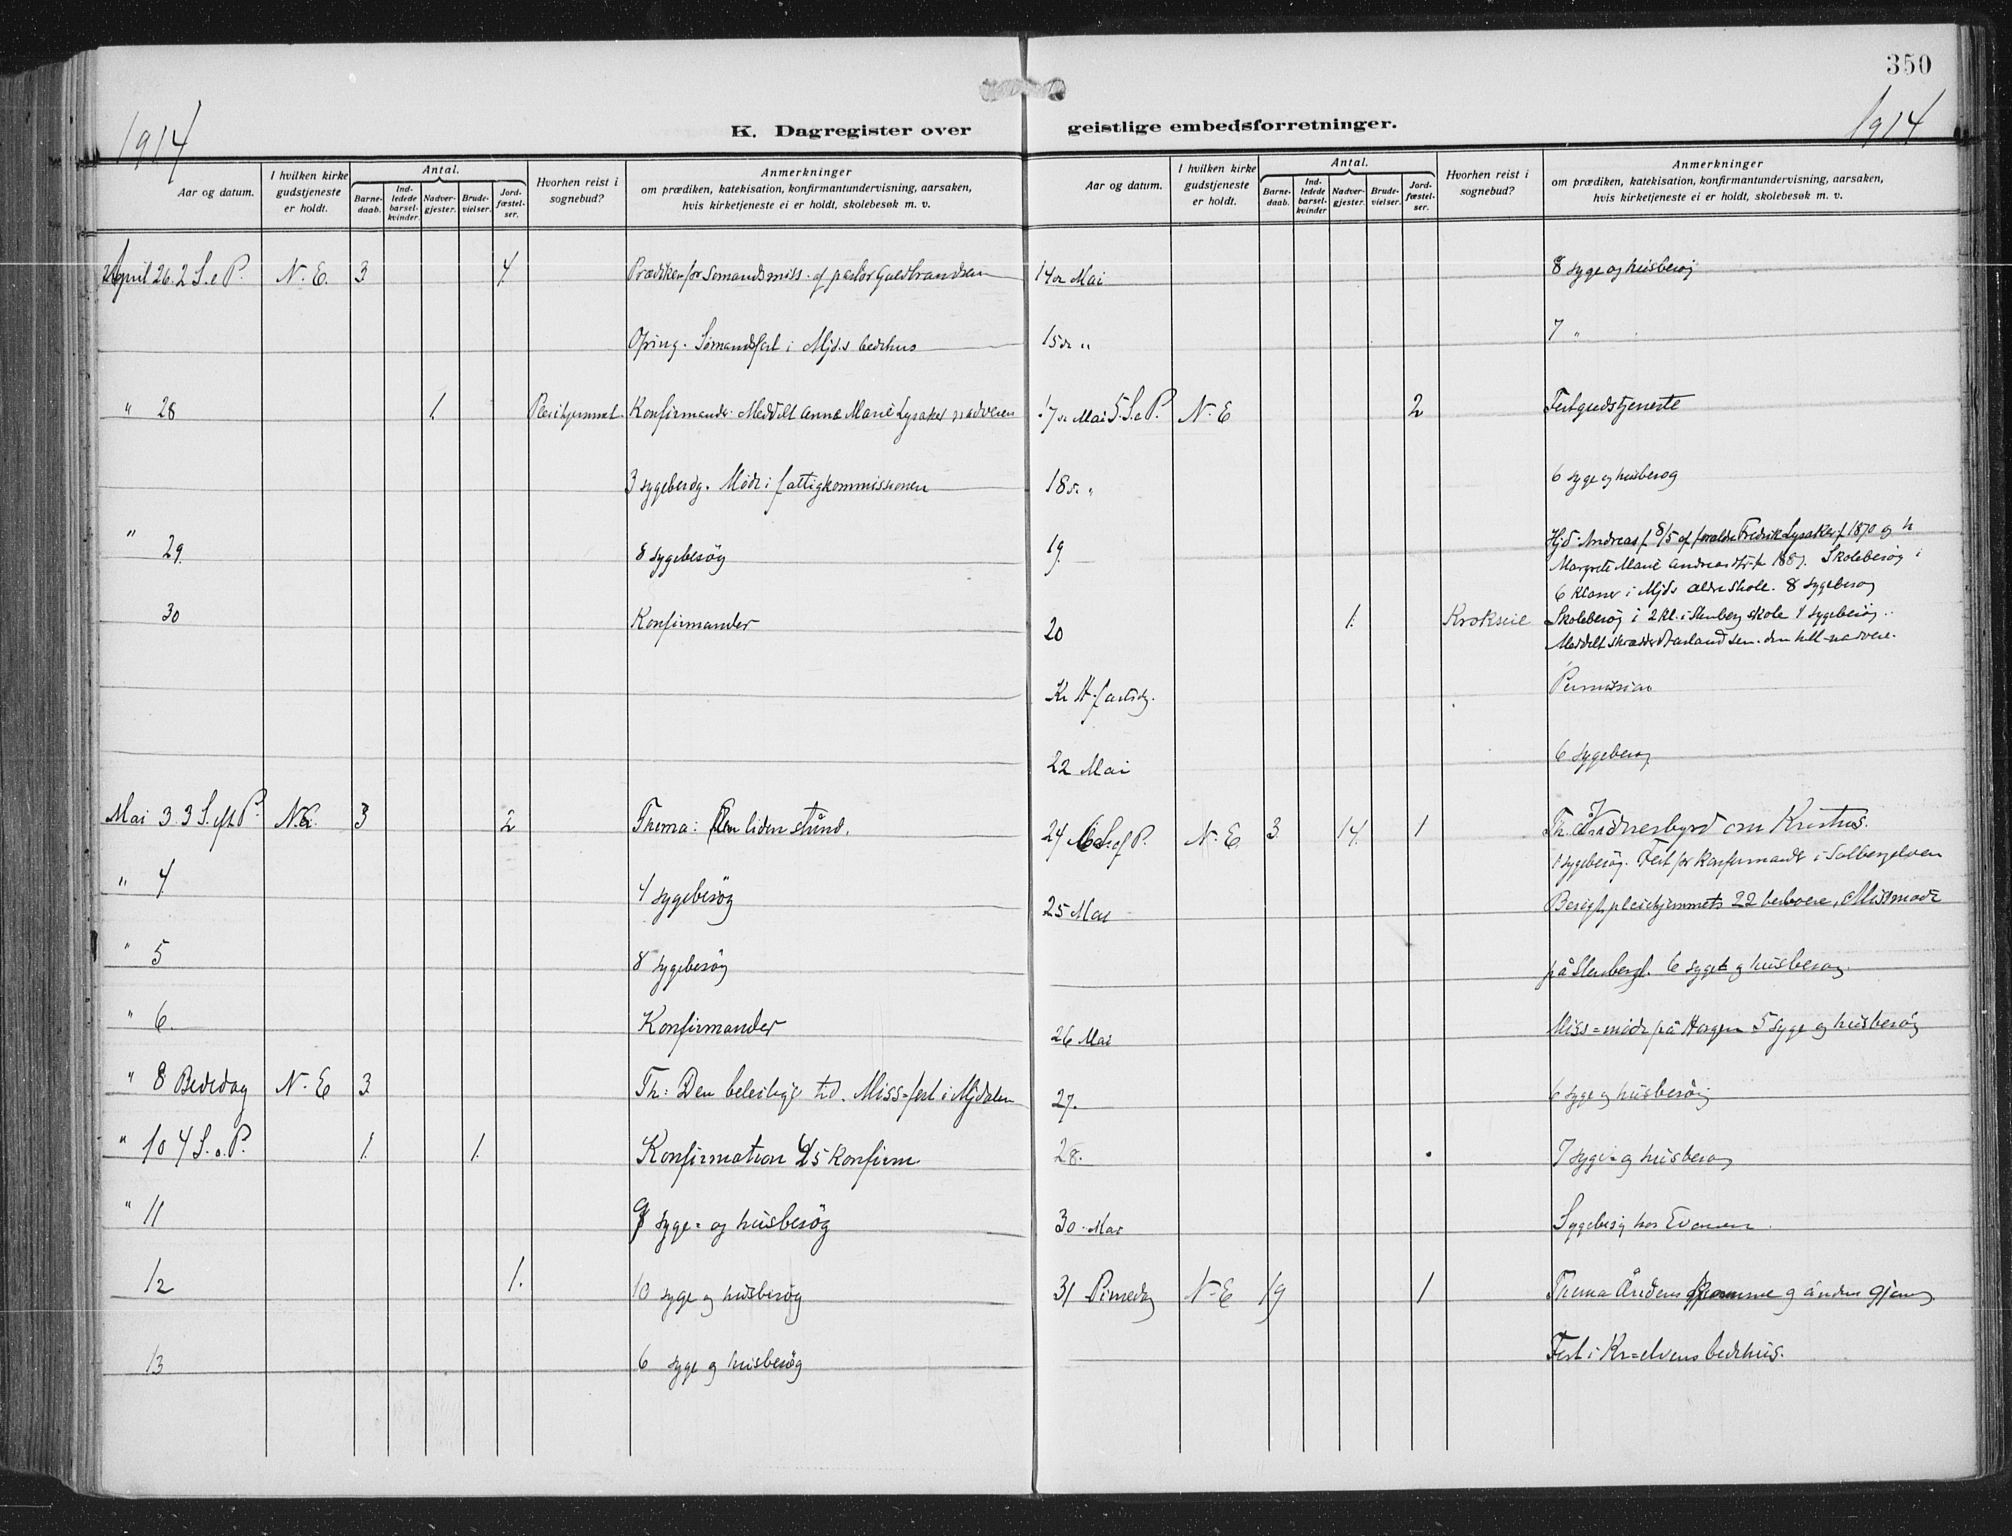 350
1914
K. Dagregister over
Aar og datum.
I hvilken kirke gudstjeneste er holdt.
Antal.
Barne-daab.
Ind-ledede barsel-kvinder
Nadver-gjester.
Brude-vielser.
Jord-fæstel-ser.
Hvorhen reist i sognebud?
Anmerkninger
om prædiken, katekisation, konfirmantundervisning, aarsaken,
hvis kirketjeneste ei er holdt, skolebesøk m. v.
April 26. 2 S. e P. N. E. 3 4. Prædiken for Sømandsmiss. af pastor Guldbrandsen
Ofring. Sømandsfest i Mjd.s bedehus
" 28 1. Pleiehjemmet. Konfirmander. Meddelt Anna Marie Lysaker nadveren
3 sygebesøg. Møde i fattigkommissionen
" 29. 8 sygebesøg
30 Konfirmander
Mai 3. 3 S. eft P. N. E. 3 2 Thema: Den liden stund.
" 4 4 sygebesøg
" 5 8 sygebesøg
" 6. Konfirmander
" 8 Bededag N. E 3 Th: Den beleilige tid. Miss=fest i Mjdalen
" 10 4 S. e. P. 1. 1. Konfirmation 25 Konfirm.
" 11 9 syge= og husbesøg
12 1. 10 syge og husbesøg
13 6 syge og husbesøg
geistlige embedsforretninger.
1914
Aar og datum.
I hvilken kirke gudstjeneste er holdt.
Antal.
Barne-daab.
Ind-ledede barsel-kvinder
Nadver-gjester.
Brude-vielser.
Jord-fæstel-ser.
Hvorhen reist i sognebud?
Anmerkninger
om prædiken, katekisation, konfirmantundervisning, aarsaken,
hvis kirketjeneste ei er holdt, skolebesøk m. v.
14de Mai 8 syge og husbesøg
15de " 7 "
17de Mai 5 S. e P. N. E 2 Festgudstjeneste
18de " 6 syge og husbesøg
19. Hjd. Andreas f. 8/5 af forældre Fredrik Lysaker f. 1870 og h
Margrete Marie Andreasdtr. f. 1887. Skolebesøg i
6 klasser i Mjd.s ældre skole. 8 sygebesøg
20 1. Krokseie Skolebesøg i 2 kl. i Stenberg skole 4 sygebesøg.
Meddelt den hell. nadvere.
Kr H. fartsdg. Permission
22 Mai 6 sygebesøg
24 6 S. ef P. N. E 3 14. 1 Th. Åndens vidnesbyrd om Kristus.
1 sygebesøg. Fest for konfirmander i Solbergelven
25 Mai Besøgt pleiehjemmets 22 beboere, Missmøde
på Stenbergl. 6 syge og husbesøg.
26 Mai Miss=møde på Hagen 5 syge og husbesøg
27. 6 syge og husbesøg
28. 7 syge= og husbesøg
30. Mai Sygebesøg hos Evensen.
31 Pinsedag N. E 19 1 Thema Åndens komme og åndens gjerning
Fest i Kr=elvens bedehus.